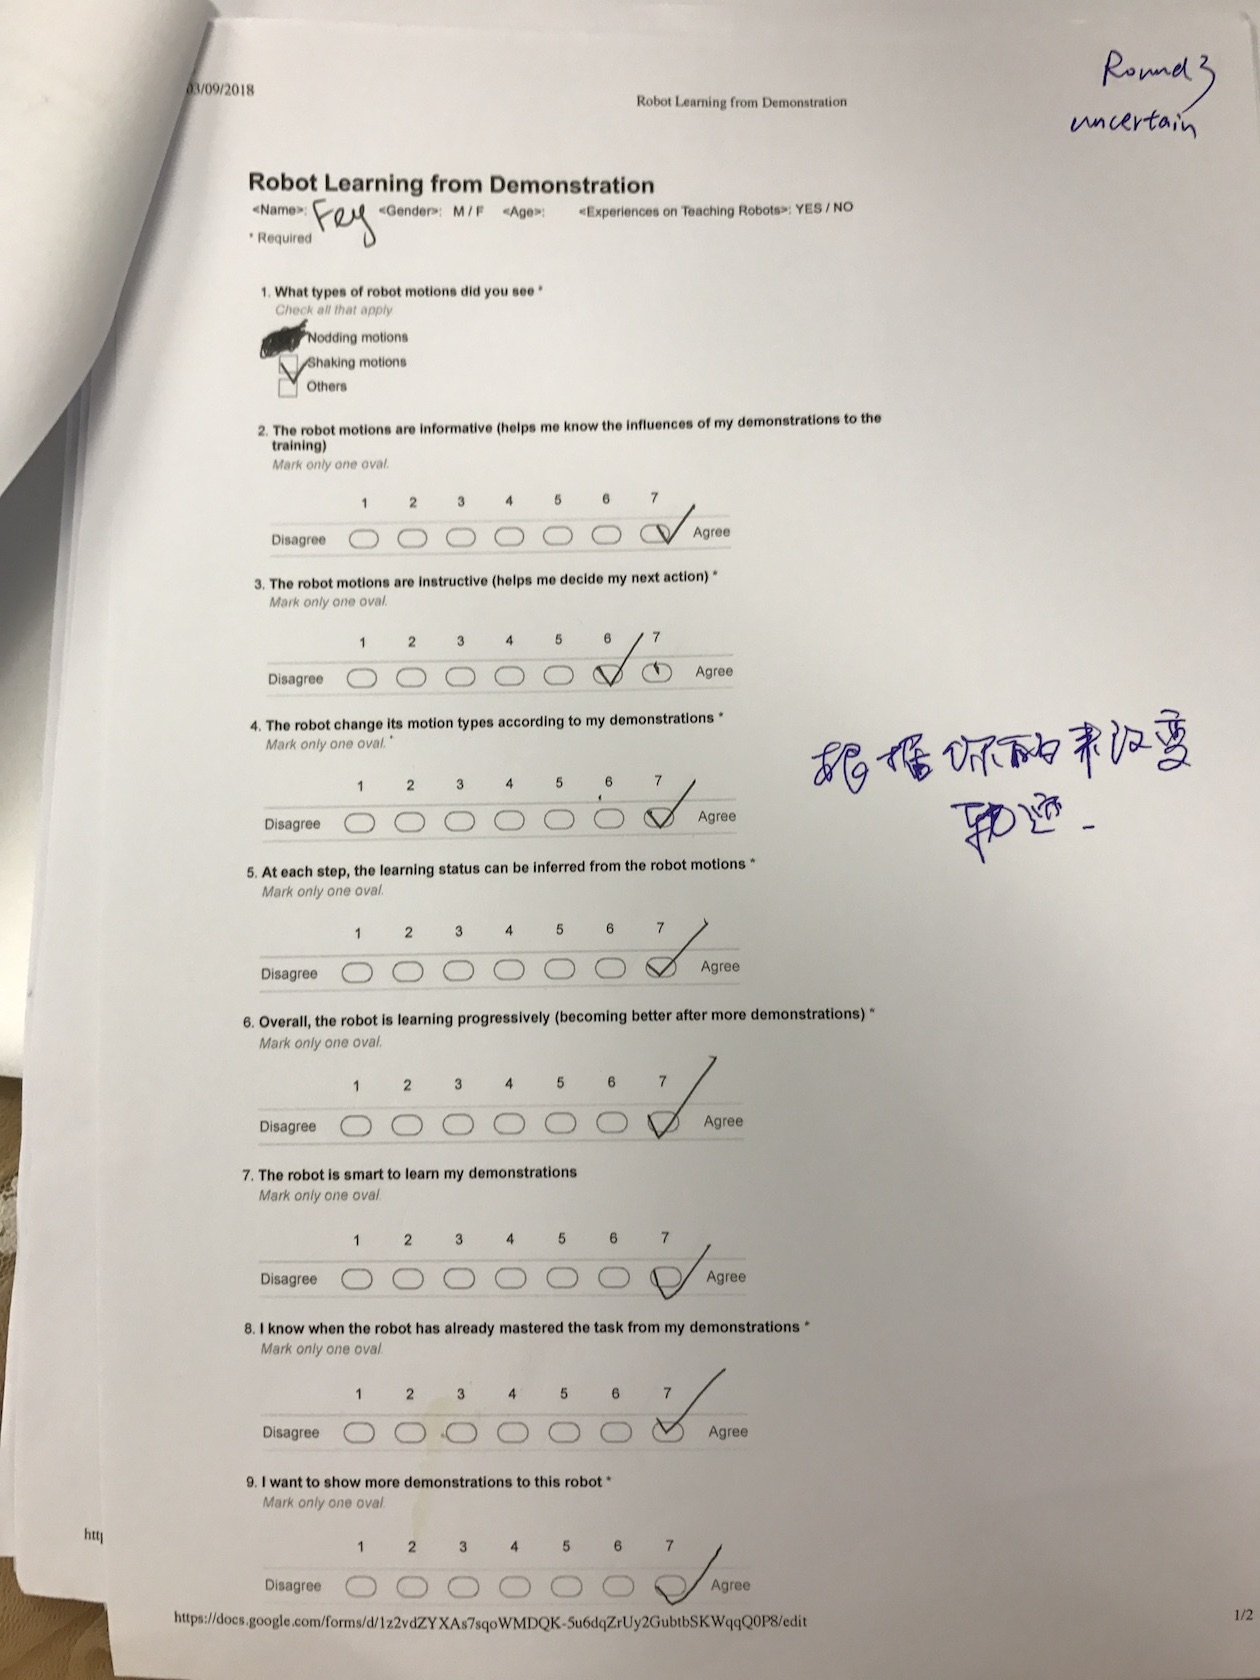 03/09/2018
Robot Learning from Demonstration
Round 3
uncertain
Robot Learning from Demonstration
<Name>: Fey <Gender>: M / F <Age>: <Experiences on Teaching Robots>: YES / NO
* Required
1. What types of robot motions did you see *
Check all that apply
Nodding motions
Shaking motions
Others
2. The robot motions are informative (helps me know the influences of my demonstrations to the
training)
Mark only one oval.
1 2 3 4 5 6 7
Disagree Agree
3. The robot motions are instructive (helps me decide my next action) *
Mark only one oval.
1 2 3 4 5 6 7
Disagree Agree
4. The robot change its motion types according to my demonstrations *
Mark only one oval.
根据你的来改变
轨迹.
1 2 3 4 5 6 7
Disagree Agree
5. At each step, the learning status can be inferred from the robot motions *
Mark only one oval.
1 2 3 4 5 6 7
Disagree Agree
6. Overall, the robot is learning progressively (becoming better after more demonstrations) *
Mark only one oval.
1 2 3 4 5 6 7
Disagree Agree
7. The robot is smart to learn my demonstrations
Mark only one oval
1 2 3 4 5 6 7
Disagree Agree
8. I know when the robot has already mastered the task from my demonstrations *
Mark only one oval.
1 2 3 4 5 6 7
Disagree Agree
9. I want to show more demonstrations to this robot *
Mark only one oval
1 2 3 4 5 6 7
Disagree Agree
https://docs.google.com/forms/d/1z2vdZYXAs7sqoWMDQK-5u6dqZrUy2GubtbSKWqqQ0P8/edit
1/2
http